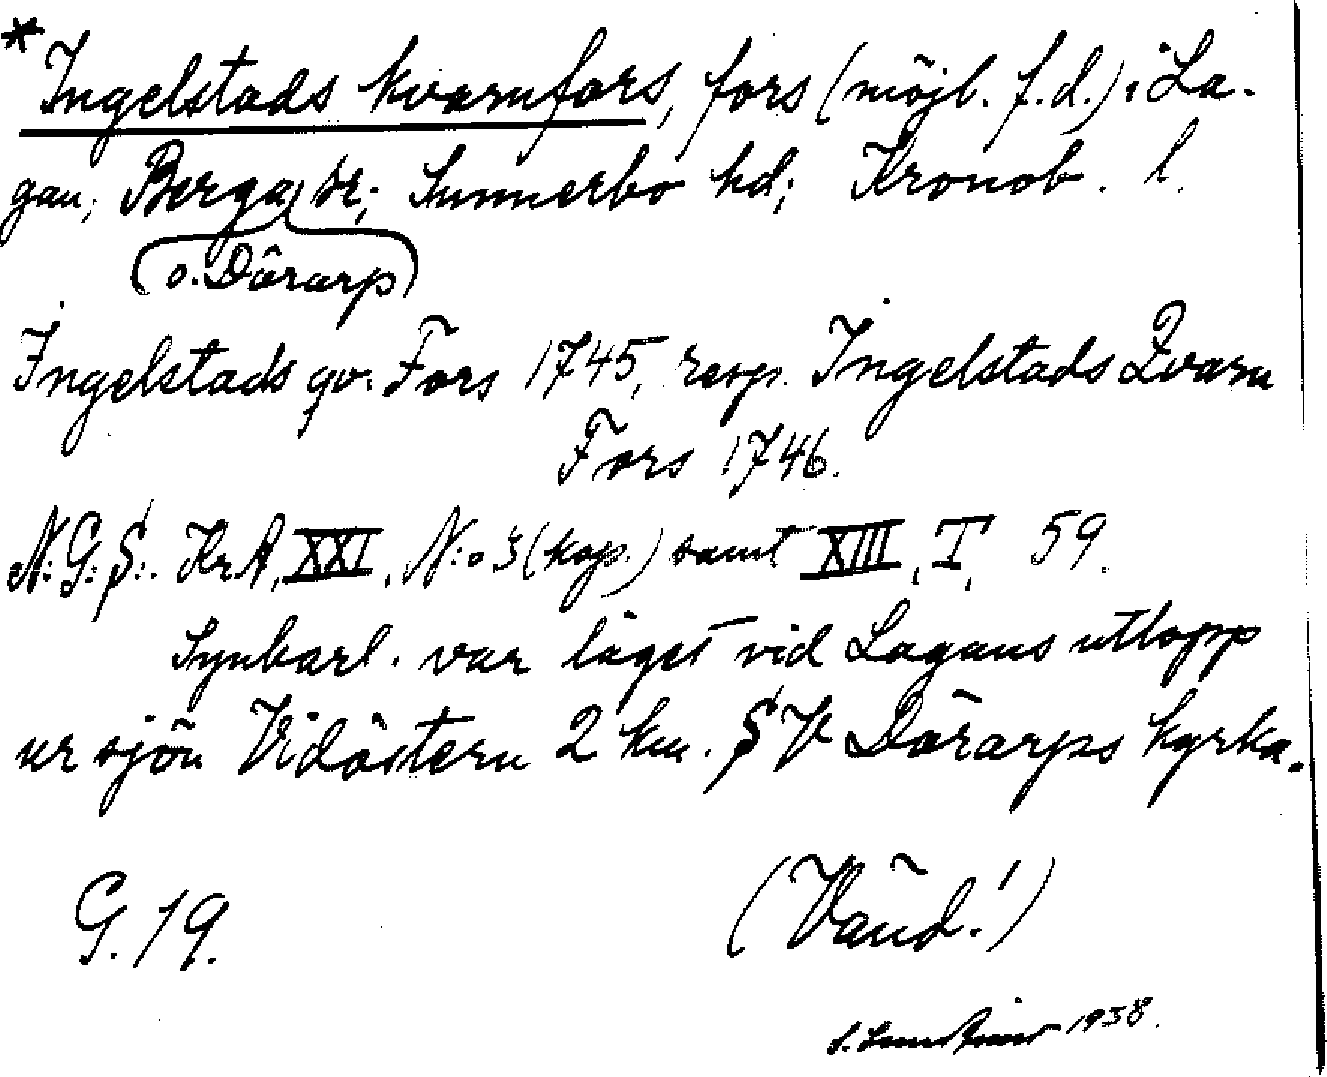 *Ingelstads kvarnfors, fors (möjl. f.d.) i La-
gan, Berga sn; Sunnerbo hd; Kronob. l.
(o. Dörarp)
Ingelstads qv. Fors 1745, resp. Ingelstads Qvarn
Fors 1746.
N:G:S:. Kr.A, XXI, N:o 3 (kop.) samt XIII, I, 59.
Synbarl. var läget vid Lagans utlopp
ur sjön Vidöstern 2 km. SV Dörarps kyrka.
G. 19. (Vänd!)
1938.